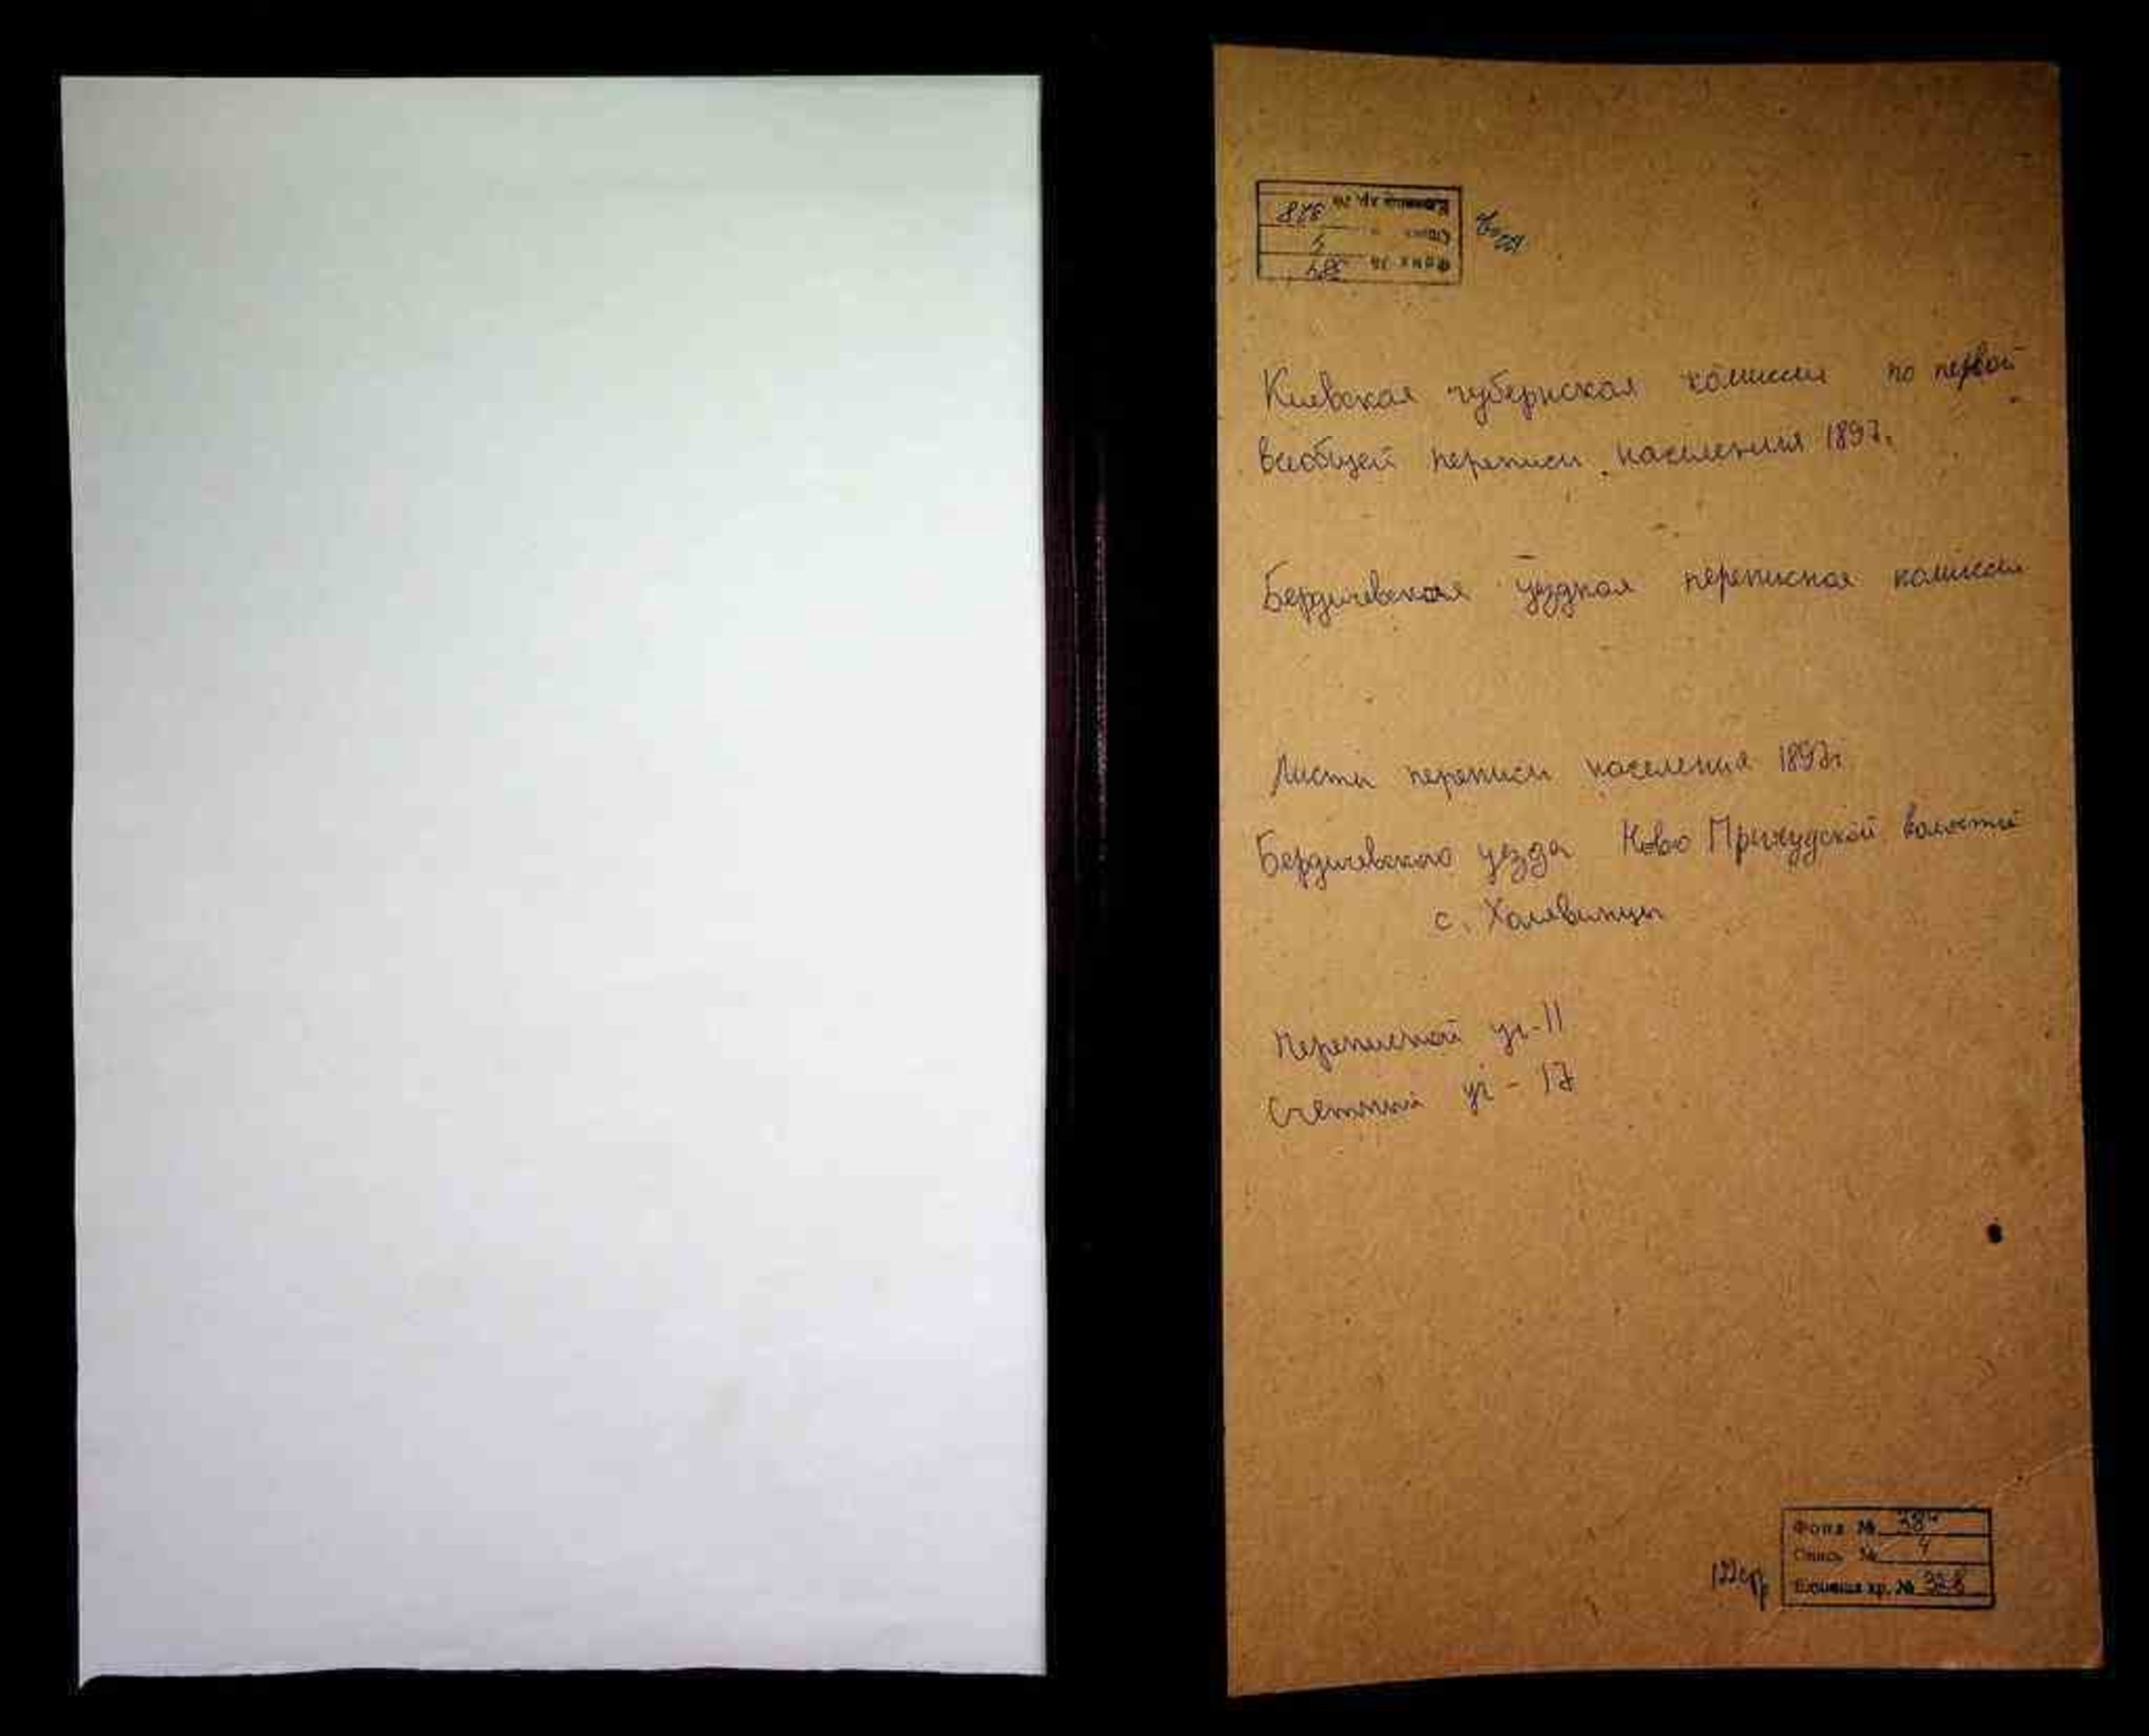 Единица хр. № 328
Опись № 4
Фонд № 384
Киевская губернская комиссия по первой
всеобщей переписи населения 1897г.
Бердичевская уездная переписная комиссия
Листы переписи населения 1897г.
Бердичевского уезда Ново Прилудской волости
с. Холявинцы
Переписной уч-11
Счетный уч - 17
Фонд № 384
Опись № 4
122ср,
Единица хр. № 328